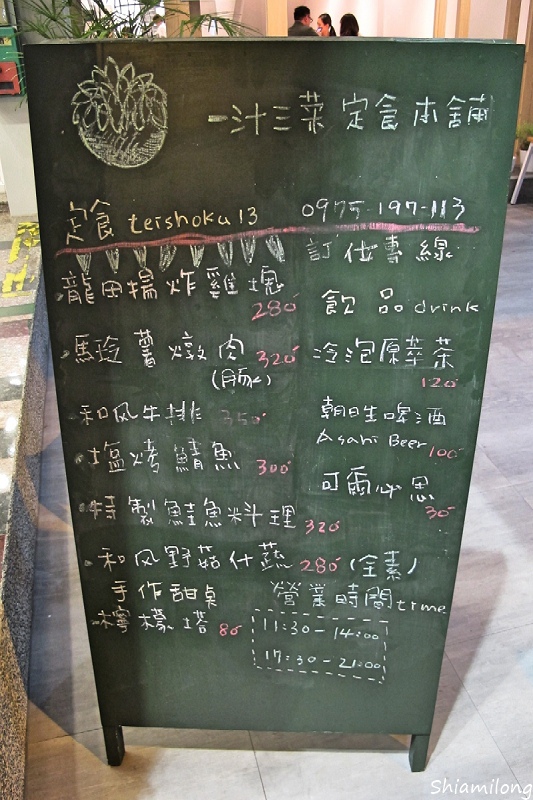 一汁三菜 定食本舖
定食 teishoku 13
0975-197-113
訂位專線
龍田揚炸雞塊
280
馬玲薯燉肉 320
(豚)
和风牛排 350
塩烤鯖魚 300
特製鮭魚料理 320
和风野菇什蔬 280 (全素)
手作甜桌
檸檬塔 80
飲品 drink
冷泡原萃茶
120
朝日生啤酒
Asahi Beer 100
可爾必思
30
營業時間 time
11:30-14:00
17:30-21:00
Shiamilong